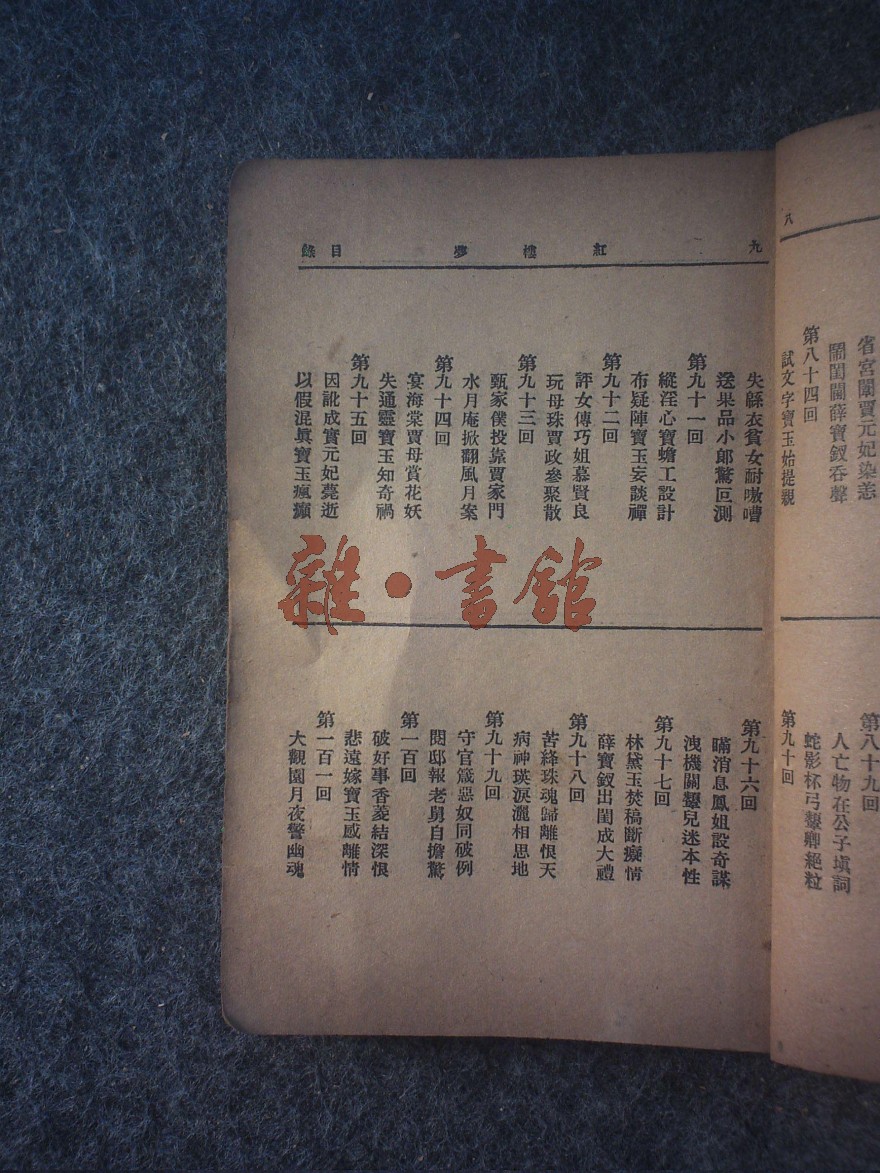 八
省宮闈賈元妃染恙
鬧閨閫薛寶釵吞聲
第八十四回
試文字寶玉始提親
第八十九回
人亡物在公子塡詞
蛇影杯弓顰卿絕粒
第九十回
九
紅樓夢
目錄
失緜衣貧女耐嗷嘈
送果品小郞驚叵測
第九十一回
縱淫心寶蟾工設計
布疑陣寶玉妄談禪
第九十二回
評女傳巧姐慕賢良
玩母珠賈政參聚散
第九十三回
甄家僕投靠賈家門
水月庵掀翻風月案
第九十四回
宴海棠賈母賞花妖
失通靈寶玉知奇禍
第九十五回
因訛成實元妃薨逝
以假混眞寶玉瘋癲
第九十六回
瞞消息鳳姐設奇謀
洩機關顰兒迷本性
第九十七回
林黛玉焚稿斷癡情
薛寶釵出閨成大禮
第九十八回
苦絳珠魂歸離恨天
病神瑛淚灑相思地
第九十九回
守官箴惡奴同破例
閱邸報老舅自擔驚
第一百回
破好事香菱結深恨
悲遠嫁寶玉感離情
第一百一回
大觀園月夜警幽魂
雜·書館